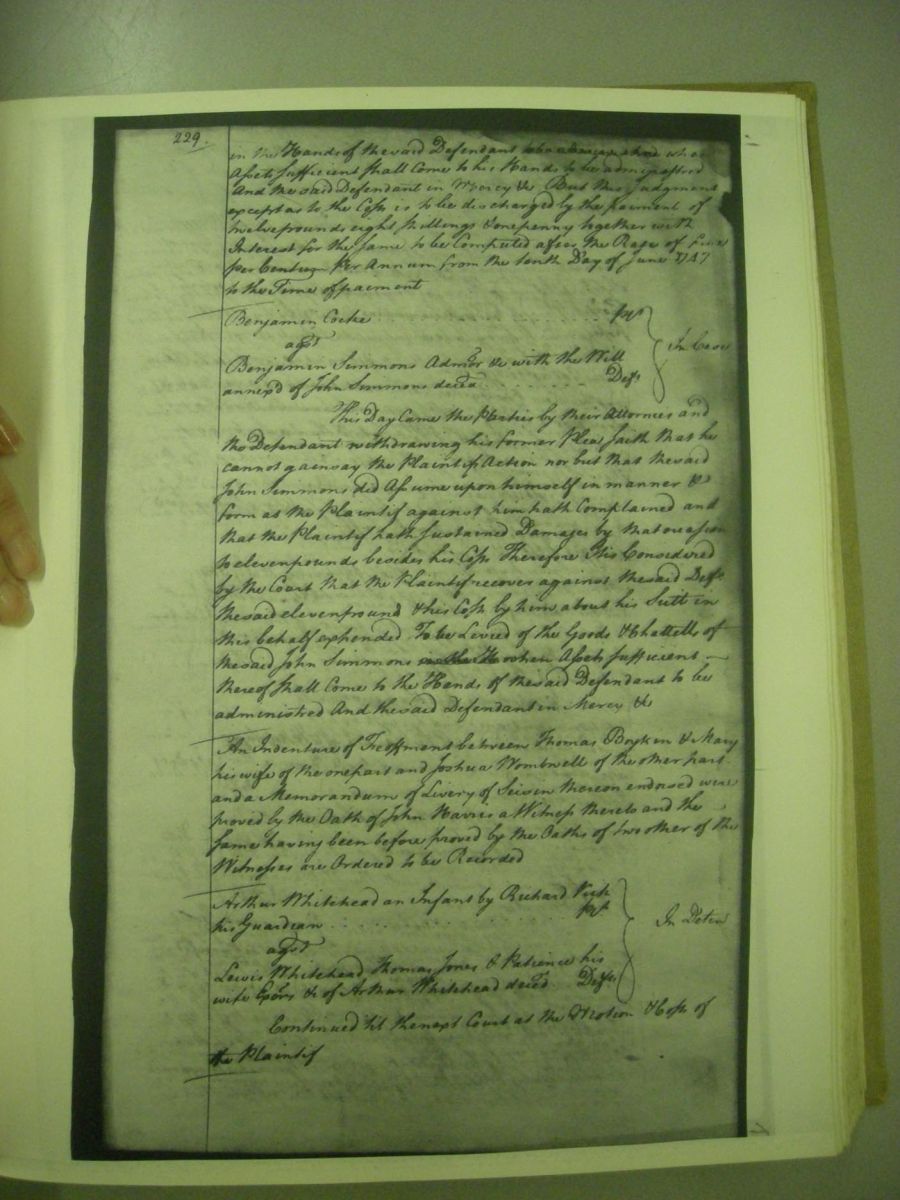 229.
in the Hands of the said Defendant when
Assets sufficient shall Come to his Hands to be administred
And the said Defendant in Mercy &c But this Judgment
except as to the Costs is to be discharged by the paiment of
twelve pounds eight shillings & one penny together with
Interest for the same to be Computed after the Rate of five
per Centum per Annum from the tenth Day of June 1747
to the Time of paiment
Benjamin Cocke . . . . . . . . . . plt
agst
In Case
Benjamin Simmons Admor &c with the Will
annex'd of John Simmons deced . . . . . . Deft
This Day Came the Parties by their Attornies and
the Defendant withdrawing his former Plea saith that he
cannot gainsay the Plaintifs Action nor but that the said
John Simmons did Assume upon himself in manner &
form as the Plaintif against him hath Complained and
that the Plaintif hath sustained Damages by that occasion
to eleven pounds besides his Costs Therefore It is Considered
by the Court that the Plaintif recover against the said Deft
the said eleven pound & his Costs by him about his Suit in
this behalf expended To be Levied of the Goods & Chattells of
the said John Simmons when Assets sufficient
thereof shall Come to the Hands of the said Defendant to be
administred And the said Defendant in Mercy &c
An Indenture of Feoffment between Thomas Boykin & Mary
his wife of the one part and Joshua Wombwell of the other part
and a Memorandum of Livery of Seisin thereon endorsed were
proved by the Oath of John Harris a Witness thereto and the
same having been before proved by the Oaths of two other of the
Witnesses are Ordered to be Recorded
Arthur Whitehead an Infant by Richard Vick
his Guardian . . . . . . . . . . plt
agst
In Detin
Lewis Whitehead Thomas Jones & Patience his
wife Exors &c of Arthur Whitehead deced Defts
Continued 'til the next Court at the Motion & Costs of
the Plaintif